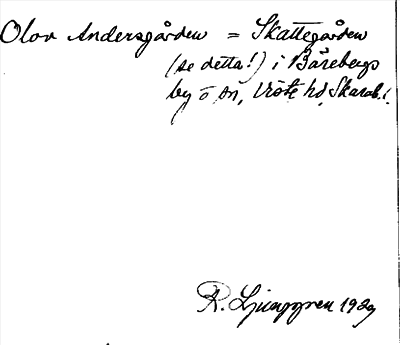 Olov Andersgården = Skattegården
(se detta!) i Bärebergs
by o sn, Viste hd, Skarab.l.
R. Ljunggren 1929